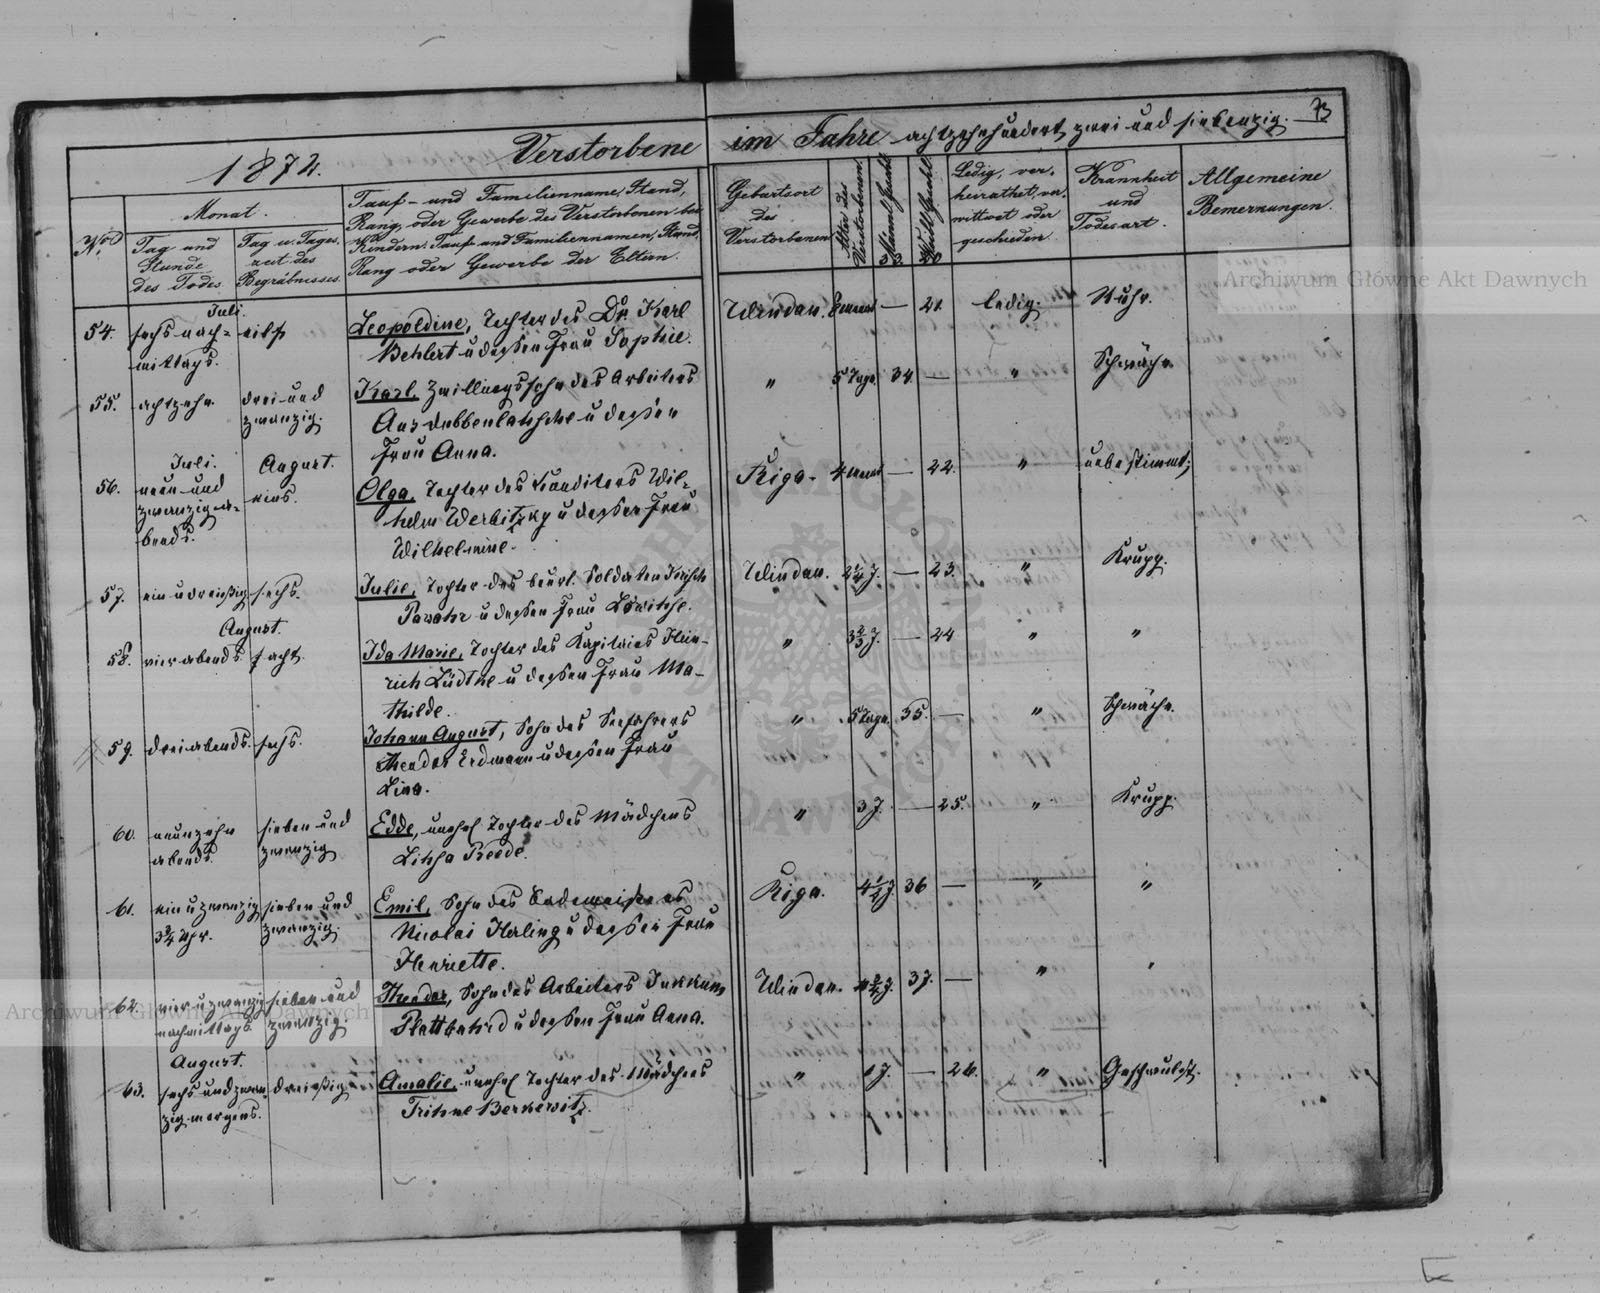 Verstorbene im Jahre achtzehnhundert zwei und siebenzig. 73
1872.
No.
Monat.
Tag und Stunde des Todes
Tag u. Tageszeit des Begräbnisses.
Tauf- und Familienname, Stand,
Rang, oder Gewerbe des Verstorbenen bei
Kindern: Tauf und Familiennamen, Stand,
Rang oder Gewerbe der Eltern.
Geburtsort
des
Verstorbenen
Alter des
Verstorbenen.
Männl. Geschl.
Weibl. Geschl.
Ledig, ver-
heirathet, ver-
wittwet oder
geschieden
Krankheit
und
Todesart.
Allgemeine
Bemerkungen.
Juli.
54. sechs nach- eilf Leopoldine, Tochter des Dr. Karl Windau. — 21. ledig. Ruhr.
mittags. Behlert u dessen Frau Sophie.
55. achtzehn drei und Karl, Zwillingssohn des Arbeiters " 5 Tage 34. — " Schwäche
zwanzig. u dessen
Frau Anna.
Juli. August.
56. neun und eins. Olga, Tochter des Konditors Wil- Riga. 4 — 22. " unbestimmt;
zwanzig a- helm Werbitzky u dessen Frau
bends. Wilhelmine.
57. ein u dreißig sechs. Julie, Tochter des beurl. Soldaten Windau. 2 1/4 J. — 23. " Krupp.
u dessen Frau
August.
58. vier abends. acht. Ida Marie, Tochter des Kapitains Hein- " 3 2/3 J. — 24 " "
rich Lüdtke u dessen Frau Ma-
thilde.
59. drei abends. sechs. Johann August, Sohn des Seefahrers " 5 Tage. 35. — " Schwäche.
Theodor Erdmann u dessen Frau
Lina.
60. neunzehn sieben und Edde, unehel Tochter des Mädchens " 3 J. — 25. " Krupp.
abends. zwanzig Lihsa Reede.
61. ein u zwanzig sieben und Emil, Sohn des Riga. 4 1/2 J. 36 — " "
3 3/4 Uhr. zwanzig. Nicolai Herling u dessen Frau
Henriette.
62. vier u zwanzig sieben und Theodor, Sohn des Arbeiters Windau. 37. — " "
nachmittags. zwanzig. u dessen Frau Anna.
August.
63. sechs und zwan- dreißig Amalie, unehel Tochter des Mädchens " 1 J. — 26. " Geschwulst.
zig morgens. Trihne Berkewitz.
Archiwum Główne Akt Dawnych
Archiwum Główne Akt Dawnych